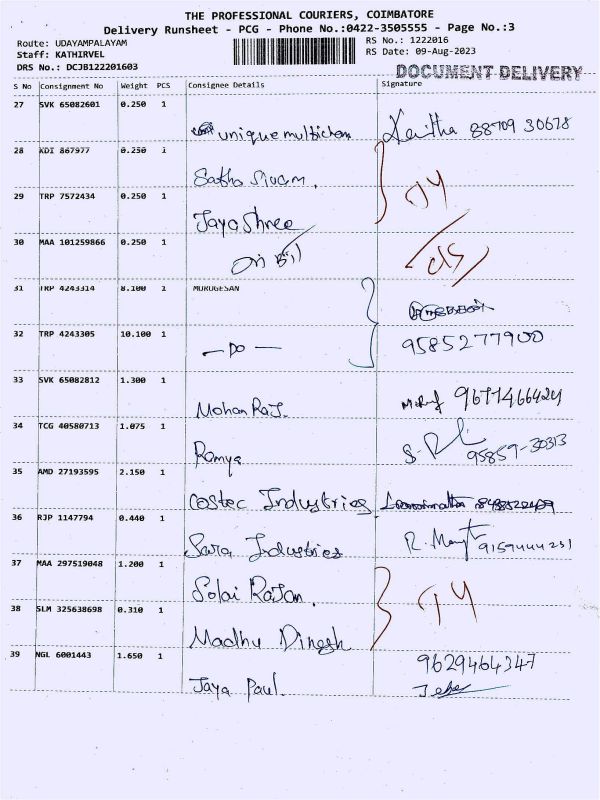 THE PROFESSIONAL COURIERS, COIMBATORE
Delivery Runsheet - PCG - Phone No.:0422-3505555 - Page No.:3
Route: UDAYAMPALAYAM RS No.: 1222016
Staff: KATHIRVEL RS Date: 09-Aug-2023
DRS No.: DCJB122201603 DOCUMENT DELIVERY
S No Consignment No Weight PCS Consignee Details Signature
27 SVK 65082601 0.250 1
unique multichem 88709 30678
28 KDI 867977 0.250 1
29 TRP 7572434 0.250 1
Jayashree
30 MAA 101259866 0.250 1
31 TRP 4243314 8.100 1 MURUGESAN
32 TRP 4243305 10.100 1
— Do — 9585277900
33 SVK 65082812 1.300 1
Mohan Raj.
34 TCG 40580713 1.075 1
Ramya 95859-30313
35 AMD 27193595 2.150 1
Costec Industries
36 RJP 1147794 0.440 1
Sara Industries 9159444231
37 MAA 297519048 1.200 1
Solai Rajan.
38 SLM 325638698 0.310 1
Madhu Dinesh
39 NGL 6001443 1.650 1 9629464347
Jaya Paul.